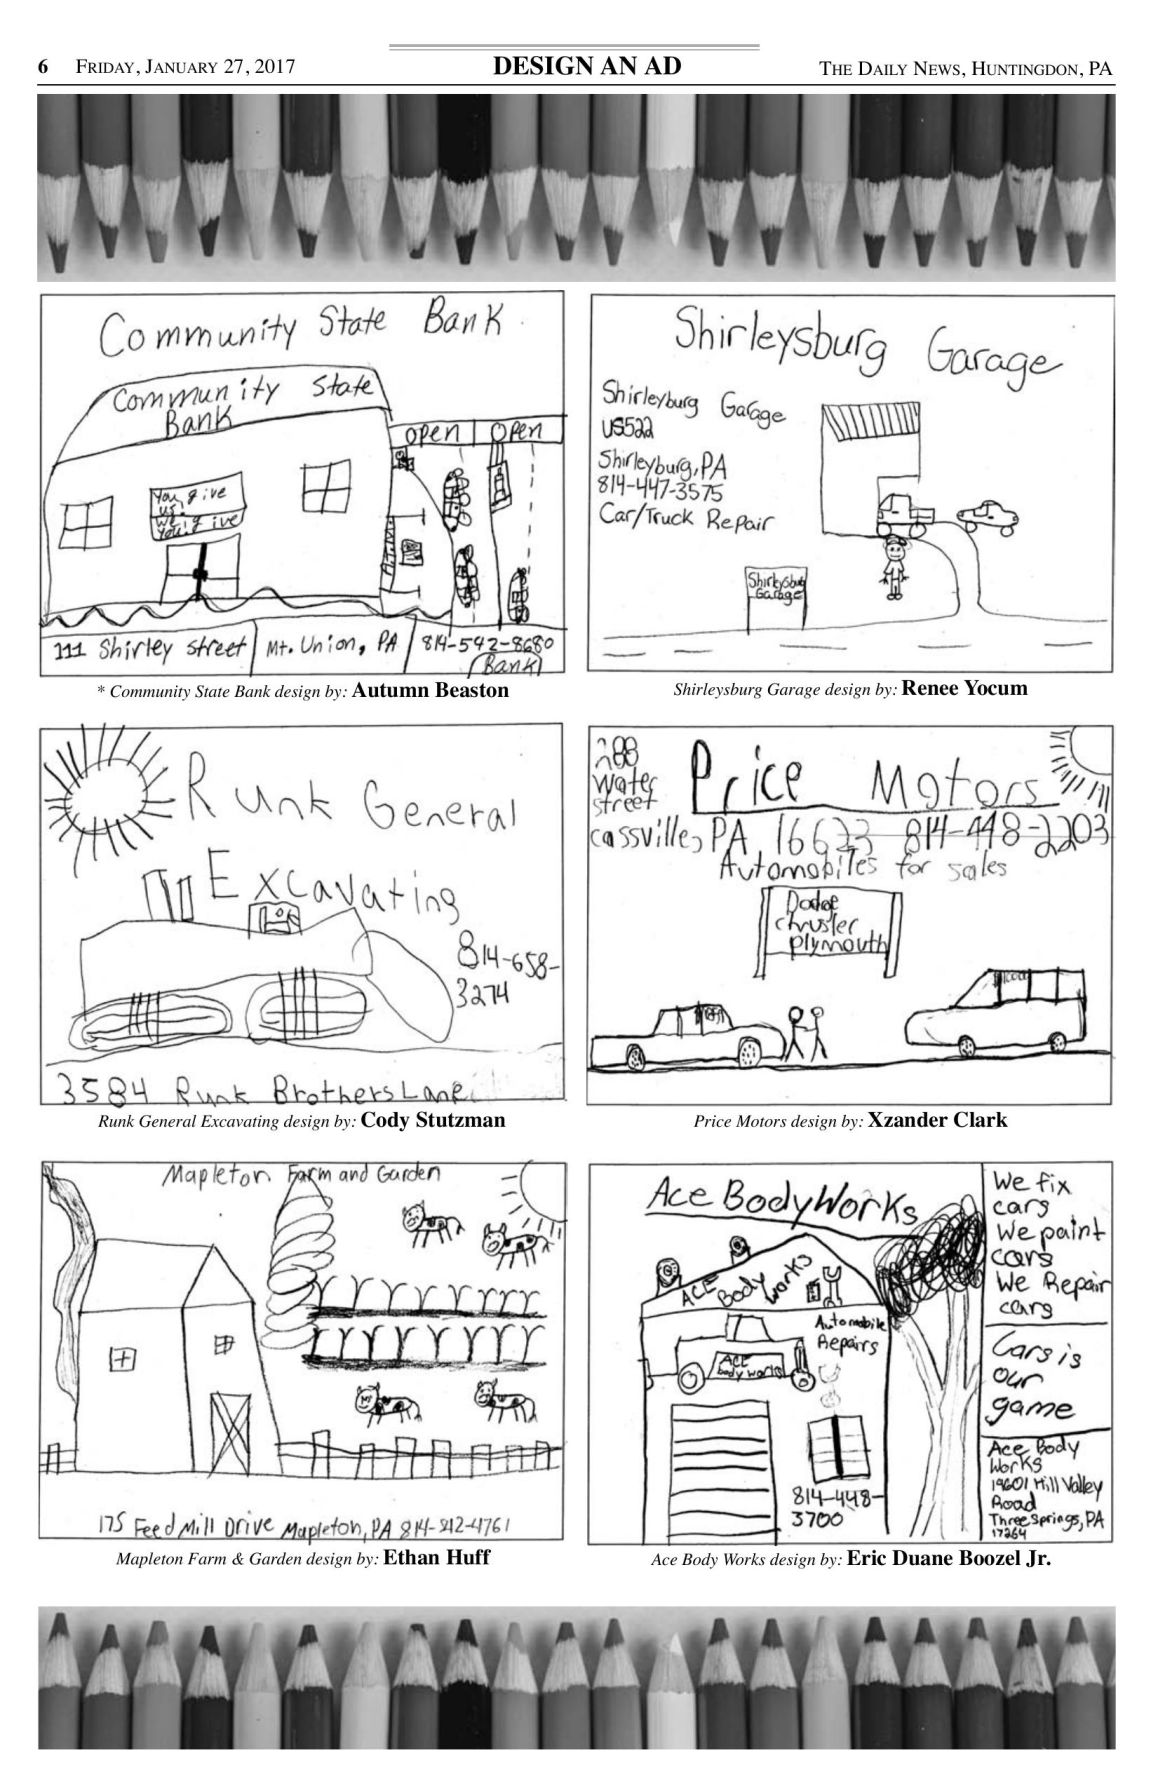 6 FRIDAY, JANUARY 27, 2017
DESIGN AN AD
THE DAILY NEWS, HUNTINGDON, PA
Community State Bank
Community State
Bank
open open
You give
us!
We give
you!
A.T.M.
111 Shirley street Mt. Union, PA 814-542-8680
Bank
* Community State Bank design by: Autumn Beaston
Shirleysburg Garage
Shirleyburg Garage
US522
Shirleyburg, PA
814-447-3575
Car/Truck Repair
Shirleysburg
Garage
Shirleysburg Garage design by: Renee Yocum
Runk General
Excavating
814-658-
3274
3584 Runk Brothers Lane
Runk General Excavating design by: Cody Stutzman
288
Water
street
Price Motors
cassville, PA 16623 814-448-2203
Automobiles for sales
Dodge
chrusler
plymouth
Price Motors design by: Xzander Clark
Mapleton Farm and Garden
175 Feed Mill Drive Mapleton, PA 814-542-4761
Mapleton Farm & Garden design by: Ethan Huff
Ace BodyWorks
ACE Body Works
Automobile
Repairs
ACE
body works
814-448-
3700
We fix
cars
We paint
cars
We Repair
cars
Cars is
our
game
Ace Body
Works
19601 Hill Valley
Road
Three Springs, PA
17264
Ace Body Works design by: Eric Duane Boozel Jr.